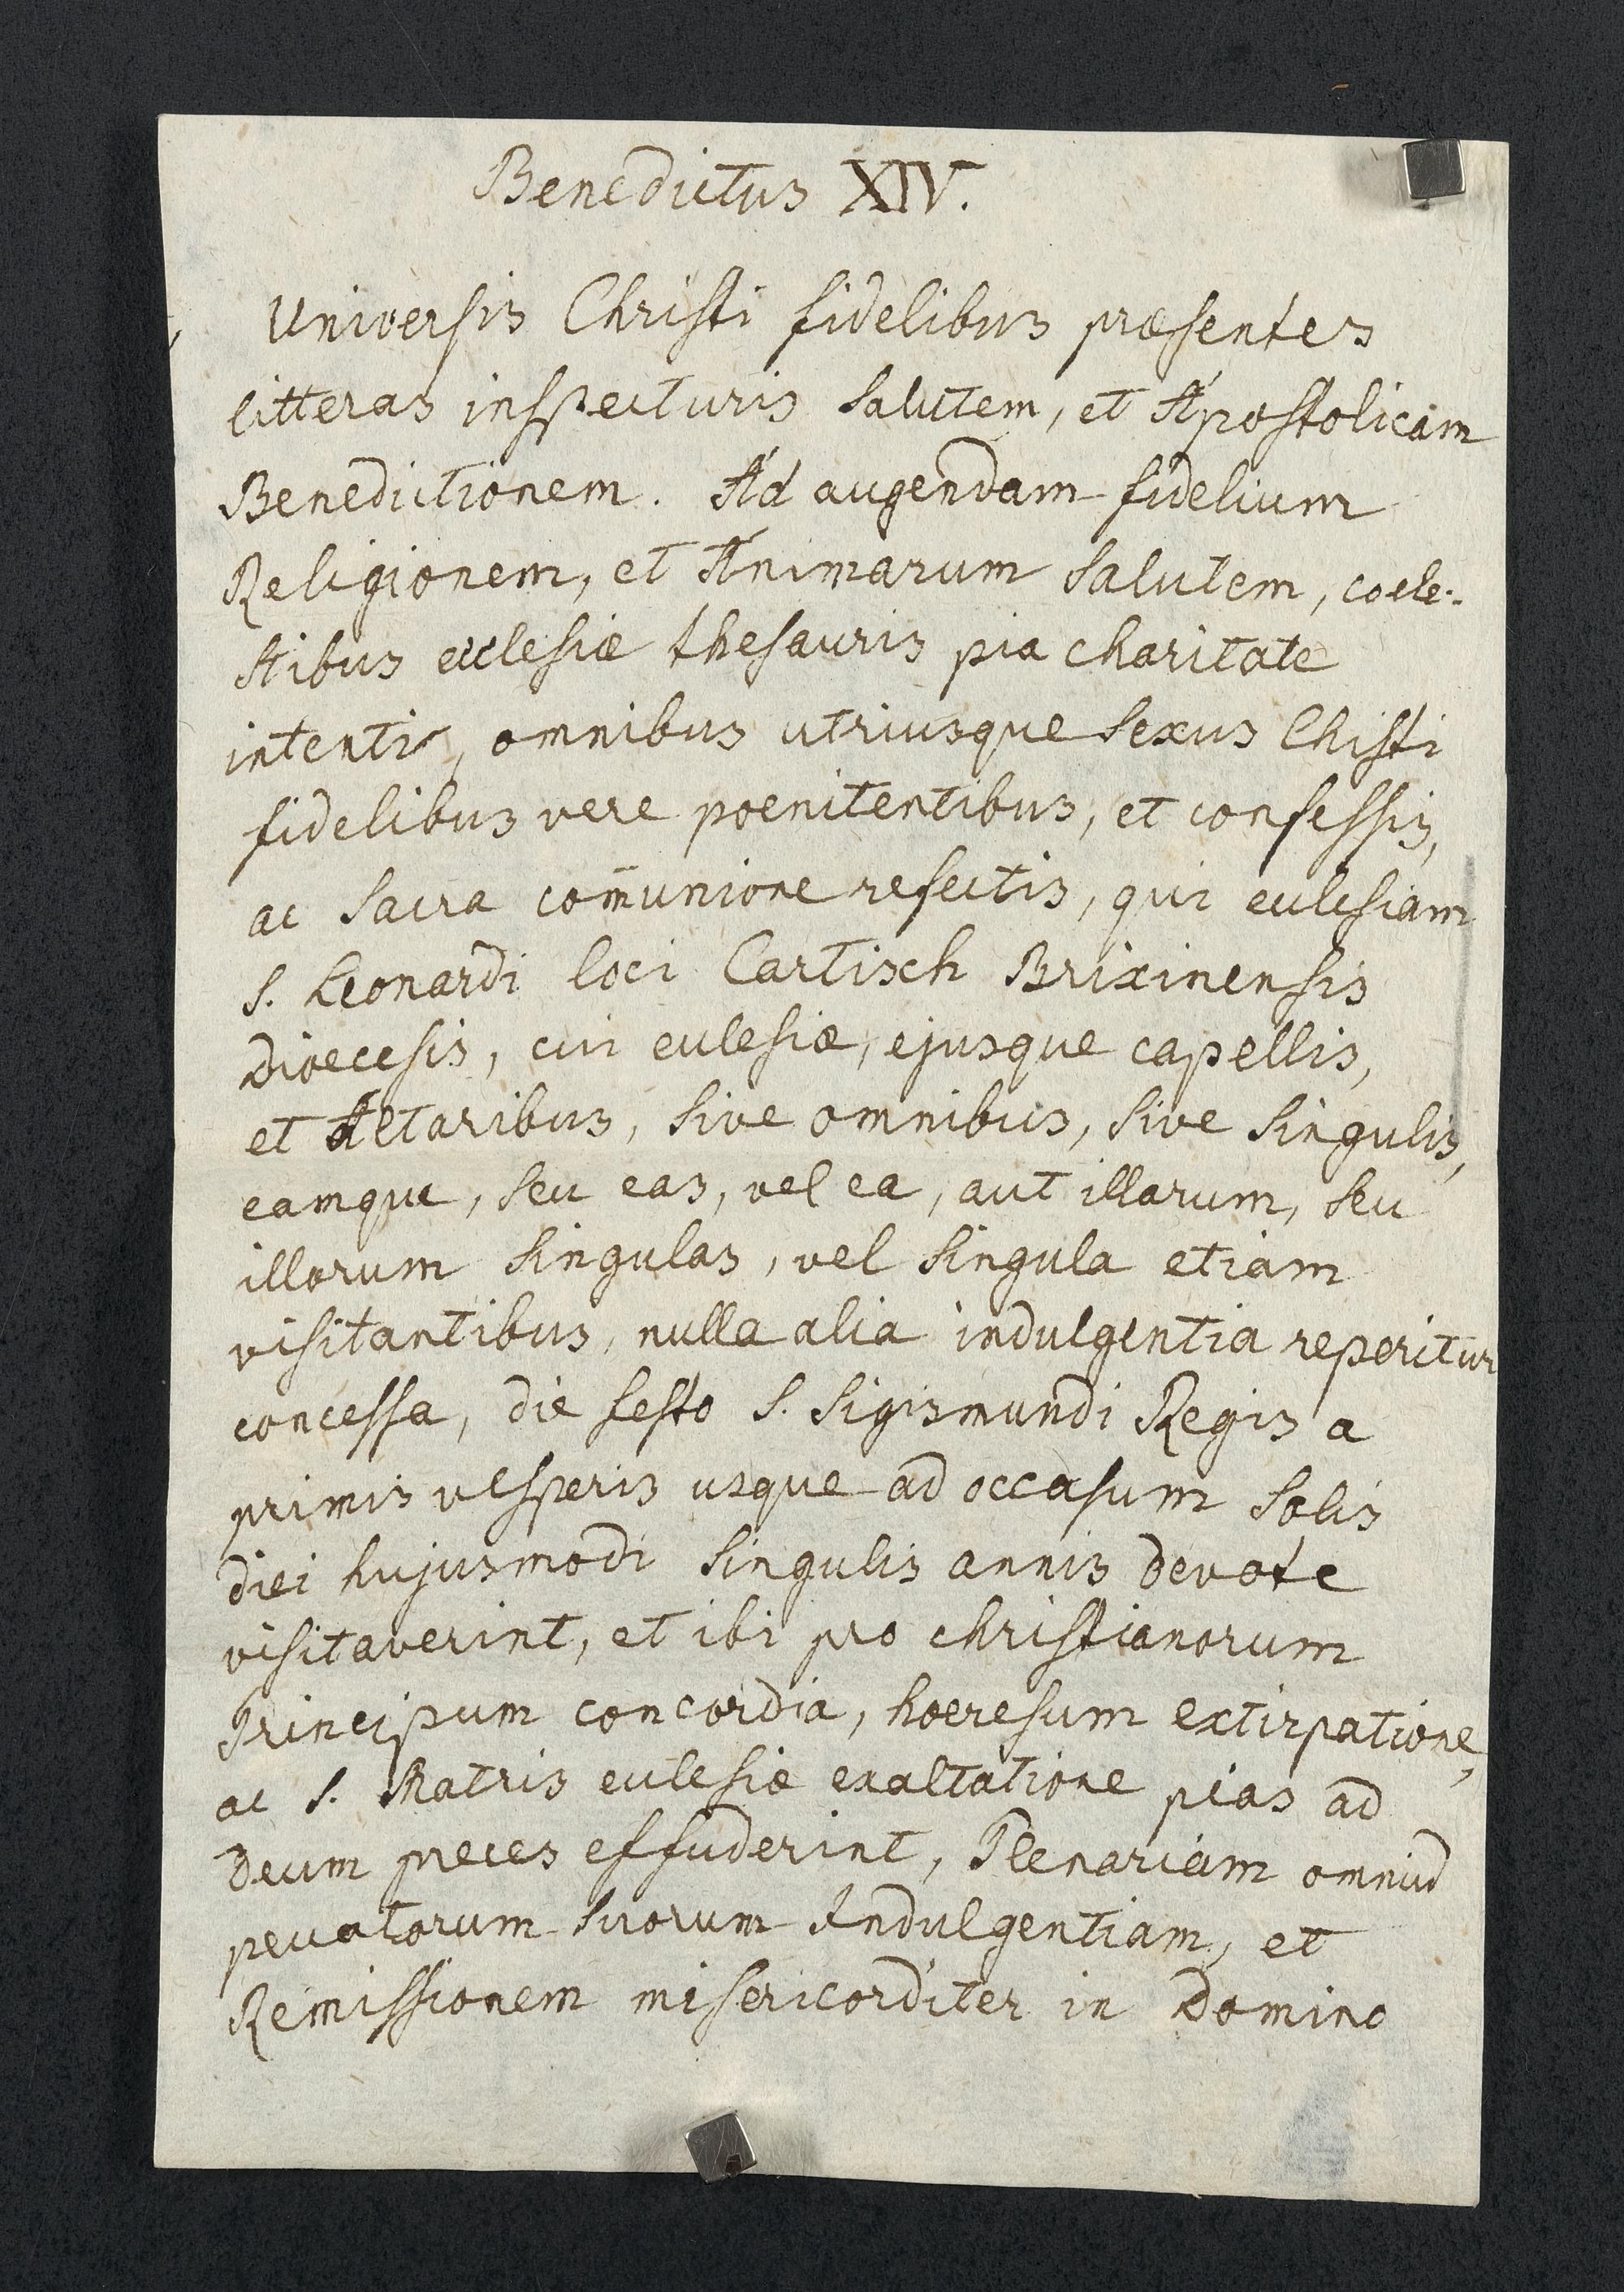 Benedictus XIV.
Universis Christi fidelibus præsentes
litteras inspecturis salutem, et Apostolicam
Benedictionem. Ad augendam fidelium
Religionem, et Animarum salutem, coele-
stibus ecclesiæ thesauris pia charitate
intenti, omnibus utriusque sexus Chisti
fidelibus vere poenitentibus, et confessis,
ac sacra com̄unione refectis, qui ecclesiam
S. Leonardi loci Cartisch Brixinensis
Dioecesis, cui ecclesiæ, ejusque capellis,
et Altaribus, sive omnibus, sive singulis,
eamque, seu eas, vel ea, aut illarum, seu
illorum singulas, vel singula etiam
visitantibus, nulla alia indulgentia reperitur
concessa, die festo S. Sigismundi Regis a
primis vesperis usque ad occasum solis
diei hujusmodi singulis annis devote
visitaverint, et ibi pro christianorum
Principum concordia, hoeresum extirpatione,
ac S. Matris ecclesiæ exaltatione pias ad
Deum preces effuderint, Plenariam omniū
peccatorum suorum Indulgentiam, et
Remissionem misericorditer in Domino